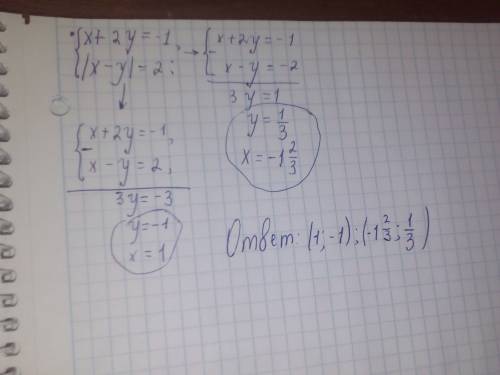 {x + 2y = -1,
|x - y| = 2;
→ {x + 2y = -1
- x - y = -2
3y = 1
y = 1/3
x = -1 2/3
↓
{x + 2y = -1,
- x - y = 2,
3y = -3
y = -1
x = 1
Ответ: (1; -1); (-1 2/3; 1/3)